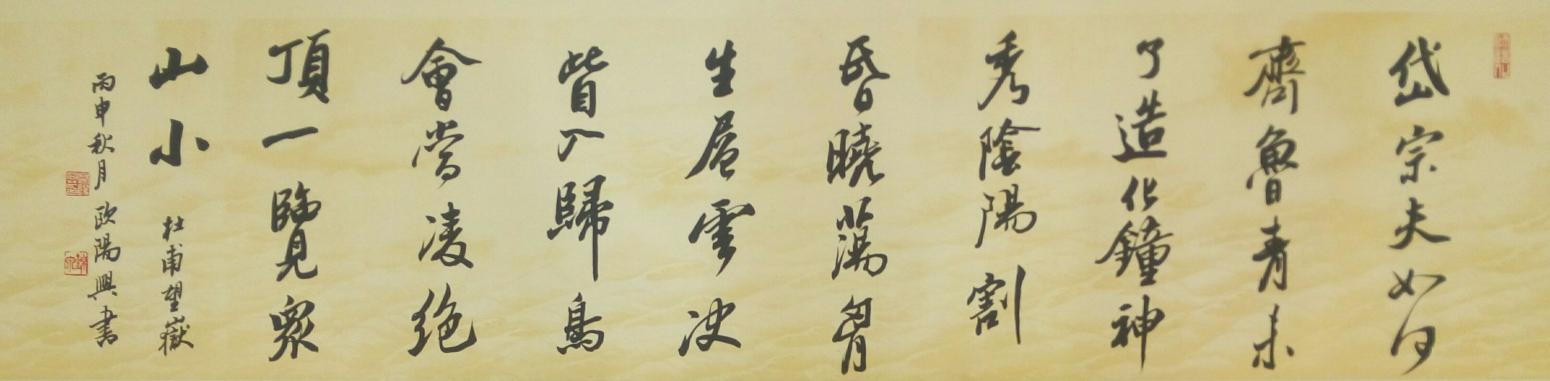 岱宗夫如何
齊魯青未
了造化鐘神
秀陰陽割
昏曉蕩胷
生層雲决
眥入歸鳥
會當凌絕
頂一覽眾
山小
杜甫望嶽
丙申秋月欧陽興書